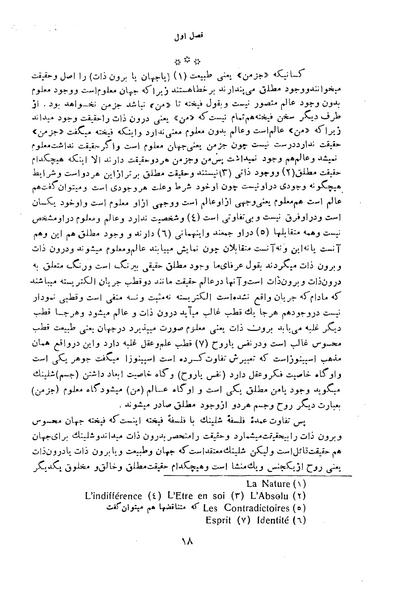 فصل اول
* * *
کسانیکه «جزمن» یعنی طبیعت (۱) (یاجهان یا برون ذات) را اصل وحقیقت
میخوانندووجود مطلق می‌پندارند برخطاهستند زیراکه جهان معلوم‌است ووجود معلوم
بدون وجود عالم متصور نیست وبقول فیخته تا «من» نباشد جزمن نخــواهد بود. از
طرف دیگر سخن فیخته‌هم‌تمام نیست‌که «من» یعنی درون ذات راحقیقت وجود میداند
زیراکه «من» عالم‌است وعالم بدون معلوم معنی‌ندارد واینکه فیخته میگفت «جزمن»
حقیقت ندارددرست نیست چون جزمن یعنی‌جهان معلوم است واگرحقیقت نداشت‌معلوم
نمیشد وعالم‌هم وجود نمیداشت پس‌من وجزمن هردوحقیقت دارند الا اینکه هیچکدام
حقیقت مطلق(۲) ووجود ذاتی (۳)نیستند وحقیقت مطلق برترازاین هردواست وشرایط
هیچگونه وجودی دراونیست چون اوخود شرط وعلت هروجودی است ومیتوان گفت‌هم
عالم است هم‌معلوم یعنی‌وجهی ازاوعالم است ووجهی ازاو معلوم است واوخود یکسان
است ودراوفرق نیست و بی‌تفاوتی است (۴) وشخصیت ندارد وعالم ومعلوم دراومشخص
نیست وهمه متقابلها (۵) دراو جمعند واینهمانی (۶) دارند و وجود مطلق هم این وهم
آنست یانه‌این ونه‌آنست متقابلان چون نمایش مییابند عالم‌ومعلوم میشوند ودرون ذات
و برون ذات میگردند بقول عرفای‌ما وجود مطلق حقیقی بیرنگ است ورنگ متعلق به
درون‌ذات وبرون‌ذات است‌وآنها درعالم حقیقت مانند دوقطب جریان الکتریسته میباشند
که مادام‌که جریان واقع نشده‌است الکتریسته نه‌مثبت ونـه منفی است وقطبی نمودار
نیست دروجودهم هرجا یك قطب غالب میآید درون ذات و عالم میشود وهرجـا قطب
دیگر غلبه می‌یابد برون ذات یعنی معلوم صورت میپذیرد درجهان یعنی طبیعت قطب
محسوس غالب است ودرنفس یاروح (۷) قطب علم‌وعقل غلبه دارد واین درواقع همان
مذهب اسپینوزاست‌که تعبیرش تفاوت‌کرده است اسپینوزا میگفت جوهر یکی است
واوگاه خاصیت فکروعقل دارد (نفس یاروح) و گاه خاصیت ابعاد داشتن (جسم)شلینگ
میگوید وجود یامن مطلق یکی است و اوگاه عــالم (من) میشودگاه معلوم (جزمن)
بعبارت دیگر روح وجسم هردو ازوجود مطلق صادر میشوند.
پس تفاوت عمدهٔ فلسفهٔ شلینك با فلسفهٔ فیخته اینست‌که فیخته جهان محسوس
و برون ذات رابیحقیقت‌میشمارد وحقیقت رامنحصر بدرون ذات میداندوشلینك برای‌جهان
هم حقیقت‌قائل‌است ولیکن شلینك‌معتقداست‌که جهان وطبیعت ویابرون ذات یادرون‌ذات
یعنی روح ازیکجنس ویك‌منشا است وهیچکدام حقیقت‌مطلق وخالق‌و مخلوق یکدیگر
La Nature (۱)
L'indifférence (۴) L'Etre en soi (۳) L'Absolu (۲)
(۵) Les Contradictoires که متناقضها هم میتوان‌گفت
Esprit (۷) Identité (۶)
۱۸